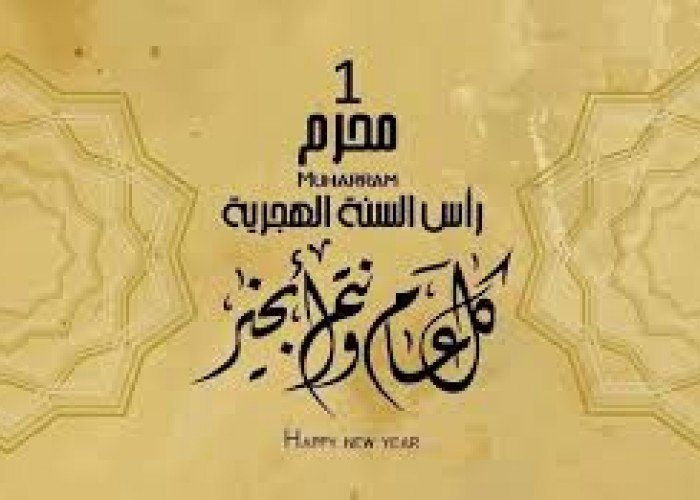 1
محرم
MUHARRAM
رأس السنة الهجرية
كل عام وأنتم بخير
HAPPY NEW YEAR